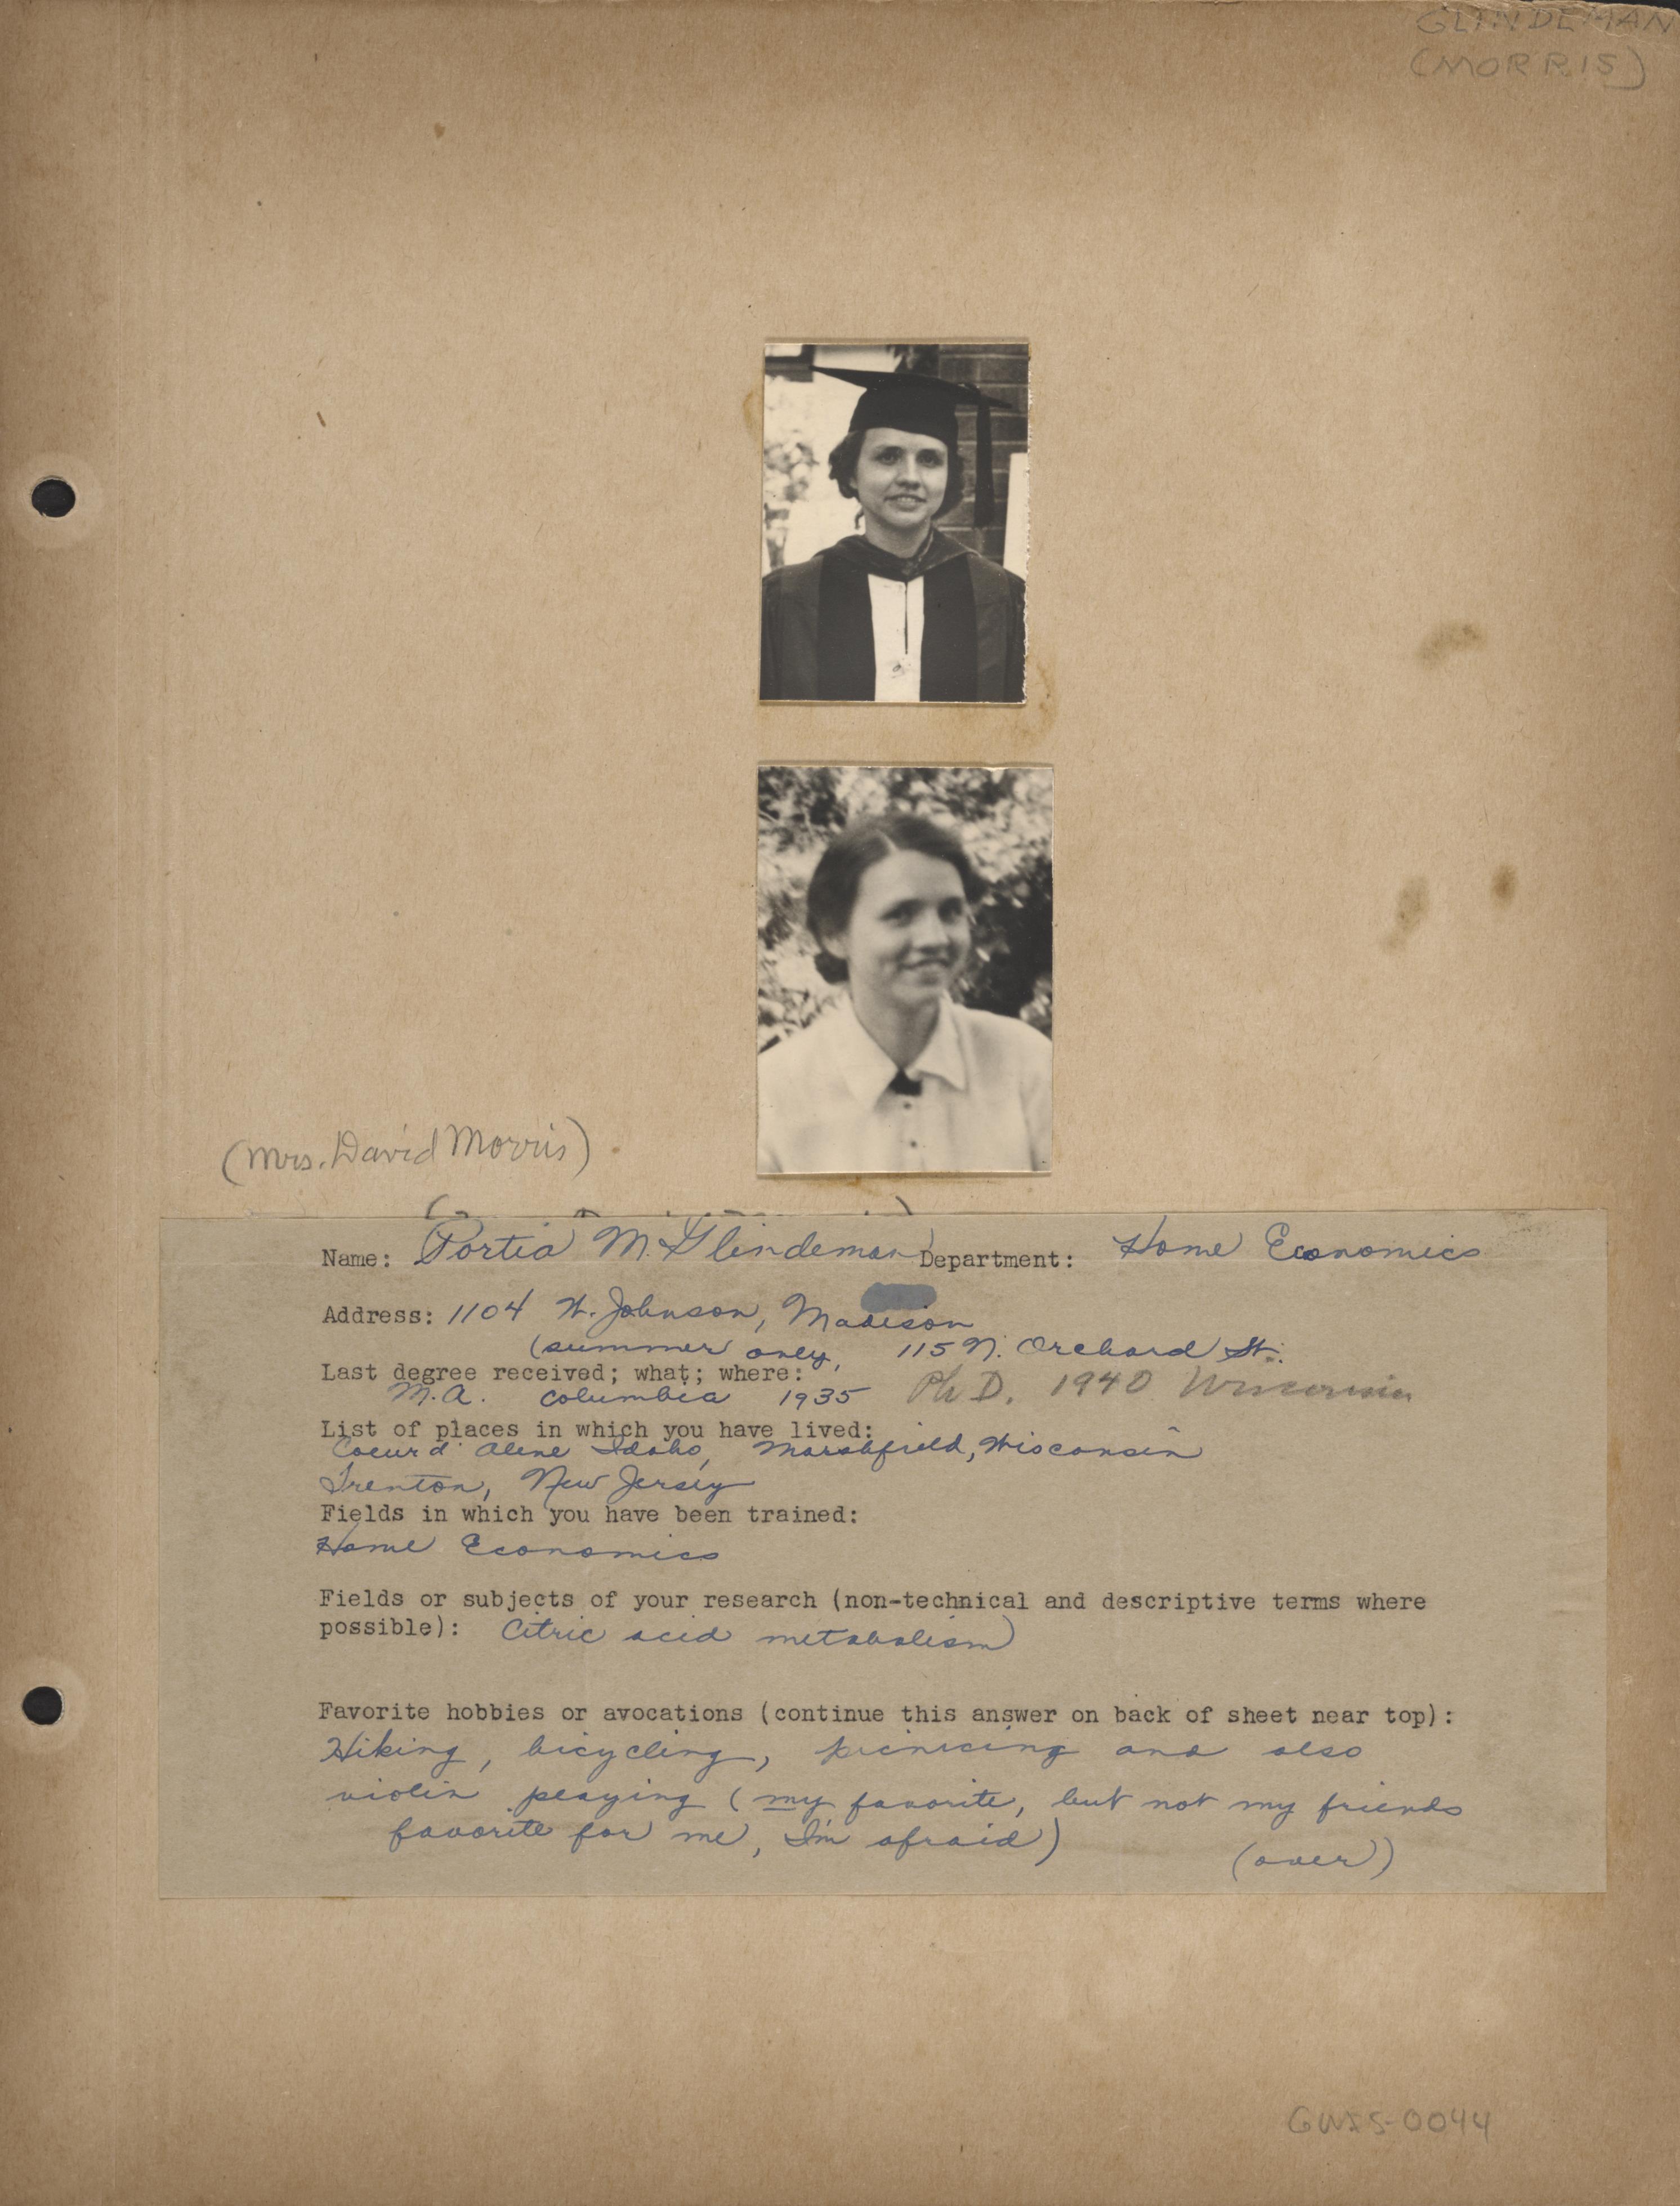 GLINDEMAN
(MORRIS)
(Mrs. David Morris)
Name: Portia M. Glindeman Department: Home Economics
Address: 1104 W. Johnson, Madison
(summer only, 115 N. Orchard St.
Last degree received; what; where:
M.A. Columbia 1935 Ph D. 1940 Wisconsin
List of places in which you have lived:
Coeur d' Alene Idaho, Marshfield, Wisconsin
Trenton, New Jersey
Fields in which you have been trained:
Home Economics
Fields or subjects of your research (non-technical and descriptive terms where
possible): Citric acid metabolism
Favorite hobbies or avocations (continue this answer on back of sheet near top):
Hiking, bicycling, picnicing and also
violin playing (my favorite, but not my friends
favorite for me, I'm afraid)
(over)
GWIS-0044